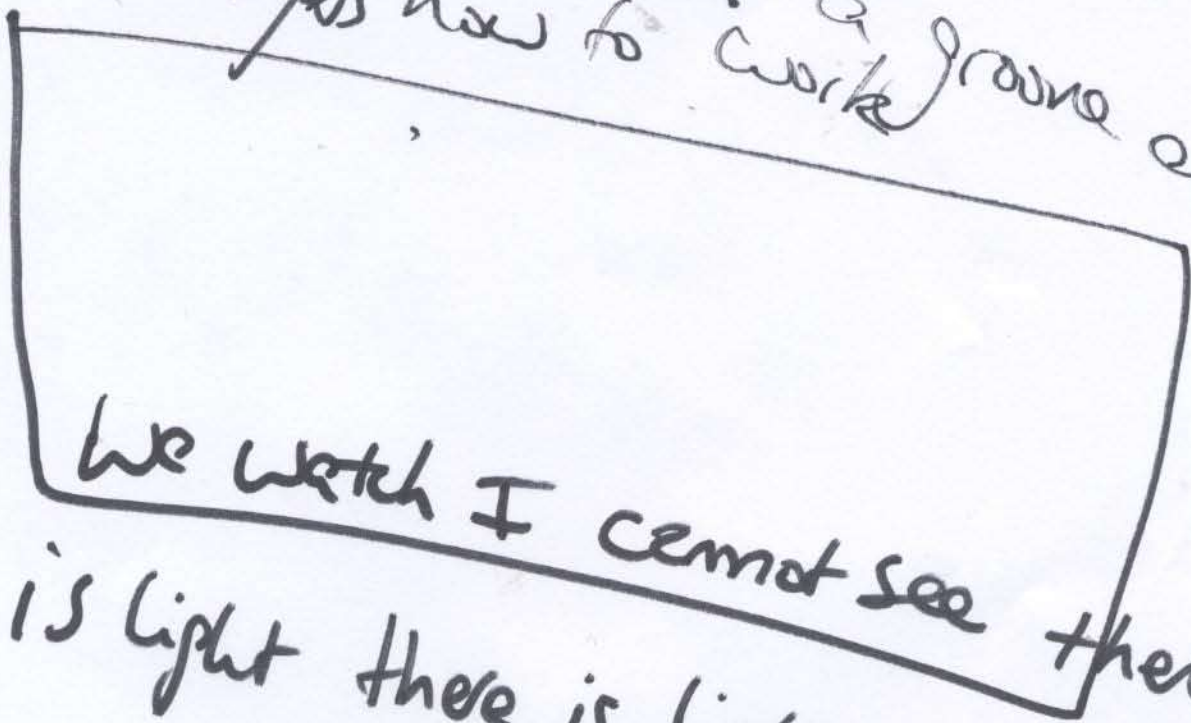 how to work a groove
We watch I cannot see ther
is light there is